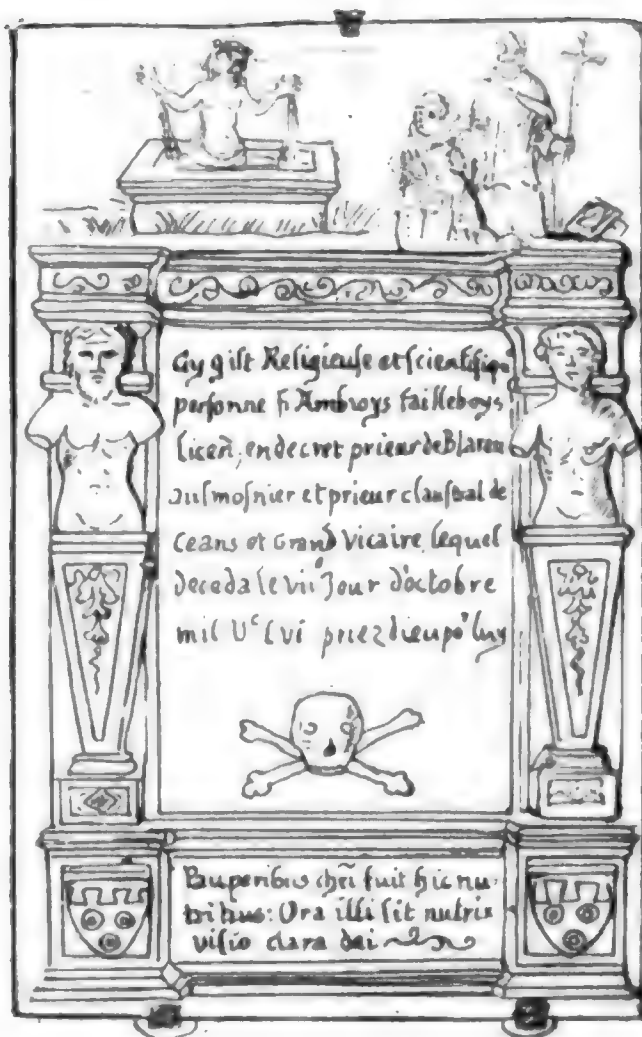 Cy gist Religieuse et scientifique
personne f. Ambroys Tailleboys
licen. en decret prieur de Blareu
ausmosnier et prieur claustral de
ceans et Grand Vicaire lequel
deceda le vii⁰ Jour d'octobre
mil Vᶜ Lvi priez dieu po' luy
Pauperibus chr̄i fuit hic nu-
tritius: Ora illi sit nutrix
visio clara dei